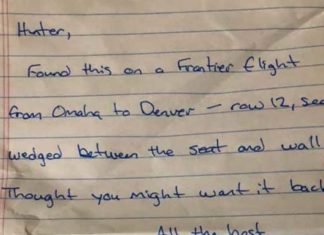 Hunter,
Found this on a Frontier flight
from Omaha to Denver — row 12, sea
wedged between the seat and wall
Thought you might want it back
All the best